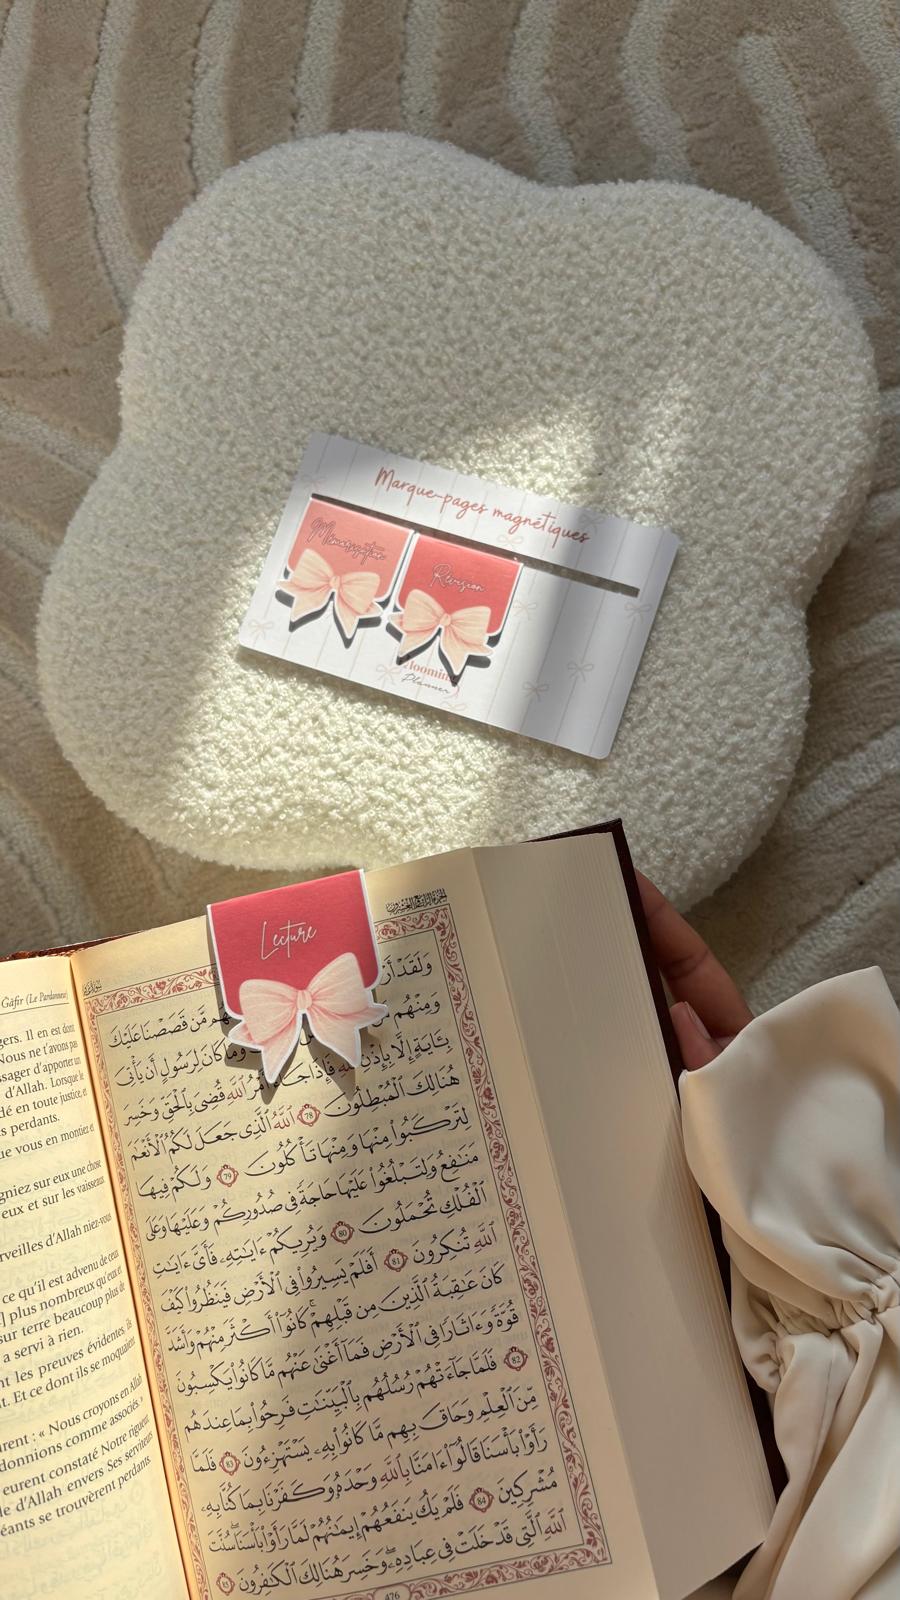 Marque-pages magnétiques
Mémorisation
Révision
Blooming
Planner
Lecture
الجزء الرابع والعشرون
وَلَقَدْ أَرْ
هُم مَّن قَصَصْنَا عَلَيْكَ
وَمِنْهُم
وَمَا كَانَ لِرَسُولٍ أَن يَأْتِىَ
بِـَٔايَةٍ إِلَّا بِإِذْنِ ٱللَّهِ فَإِذَا جَآءَ أَمْرُ ٱللَّهِ قُضِىَ بِٱلْحَقِّ وَخَسِرَ
هُنَالِكَ ٱلْمُبْطِلُونَ 78 ٱللَّهُ ٱلَّذِى جَعَلَ لَكُمُ ٱلْأَنْعَٰمَ
لِتَرْكَبُوا۟ مِنْهَا وَمِنْهَا تَأْكُلُونَ 79 وَلَكُمْ فِيهَا
مَنَٰفِعُ وَلِتَبْلُغُوا۟ عَلَيْهَا حَاجَةً فِى صُدُورِكُمْ وَعَلَيْهَا وَعَلَى
ٱلْفُلْكِ تُحْمَلُونَ 80 وَيُرِيكُمْ ءَايَٰتِهِۦ فَأَىَّ ءَايَٰتِ
ٱللَّهِ تُنكِرُونَ 81 أَفَلَمْ يَسِيرُوا۟ فِى ٱلْأَرْضِ فَيَنظُرُوا۟ كَيْفَ
كَانَ عَٰقِبَةُ ٱلَّذِينَ مِن قَبْلِهِمْ ۚ كَانُوٓا۟ أَكْثَرَ مِنْهُمْ وَأَشَدَّ
قُوَّةً وَءَاثَارًا فِى ٱلْأَرْضِ فَمَآ أَغْنَىٰ عَنْهُم مَّا كَانُوا۟ يَكْسِبُونَ
82 فَلَمَّا جَآءَتْهُمْ رُسُلُهُم بِٱلْبَيِّنَٰتِ فَرِحُوا۟ بِمَا عِندَهُم
مِّنَ ٱلْعِلْمِ وَحَاقَ بِهِم مَّا كَانُوا۟ بِهِۦ يَسْتَهْزِءُونَ 83 فَلَمَّا
رَأَوْا۟ بَأْسَنَا قَالُوٓا۟ ءَامَنَّا بِٱللَّهِ وَحْدَهُۥ وَكَفَرْنَا بِمَا كُنَّا بِهِۦ
مُشْرِكِينَ 84 فَلَمْ يَكُ يَنفَعُهُمْ إِيمَٰنُهُمْ لَمَّا رَأَوْا۟ بَأْسَنَا ۖ سُنَّتَ
ٱللَّهِ ٱلَّتِى قَدْ خَلَتْ فِى عِبَادِهِۦ ۖ وَخَسِرَ هُنَالِكَ ٱلْكَٰفِرُونَ 85
476
Gâfir (Le Pardonneur)
gers. Il en est dont
Nous ne t'avons pas
ssager d'apporter un
d'Allah. Lorsque le
dé en toute justice, et
s perdants.
que vous en montiez et
gniez sur eux une chose
eux et sur les vaisseaux
erveilles d'Allah niez-vous
ce qu'il est advenu de ceux
] plus nombreux qu'eux et
sur terre beaucoup plus de
a servi à rien.
nt les preuves évidentes, ils
t. Et ce dont ils se moquaient
urent : « Nous croyons en Allah
donnions comme associés.»
eurent constaté Notre rigueur,
le d'Allah envers Ses serviteurs
éants se trouvèrent perdants.